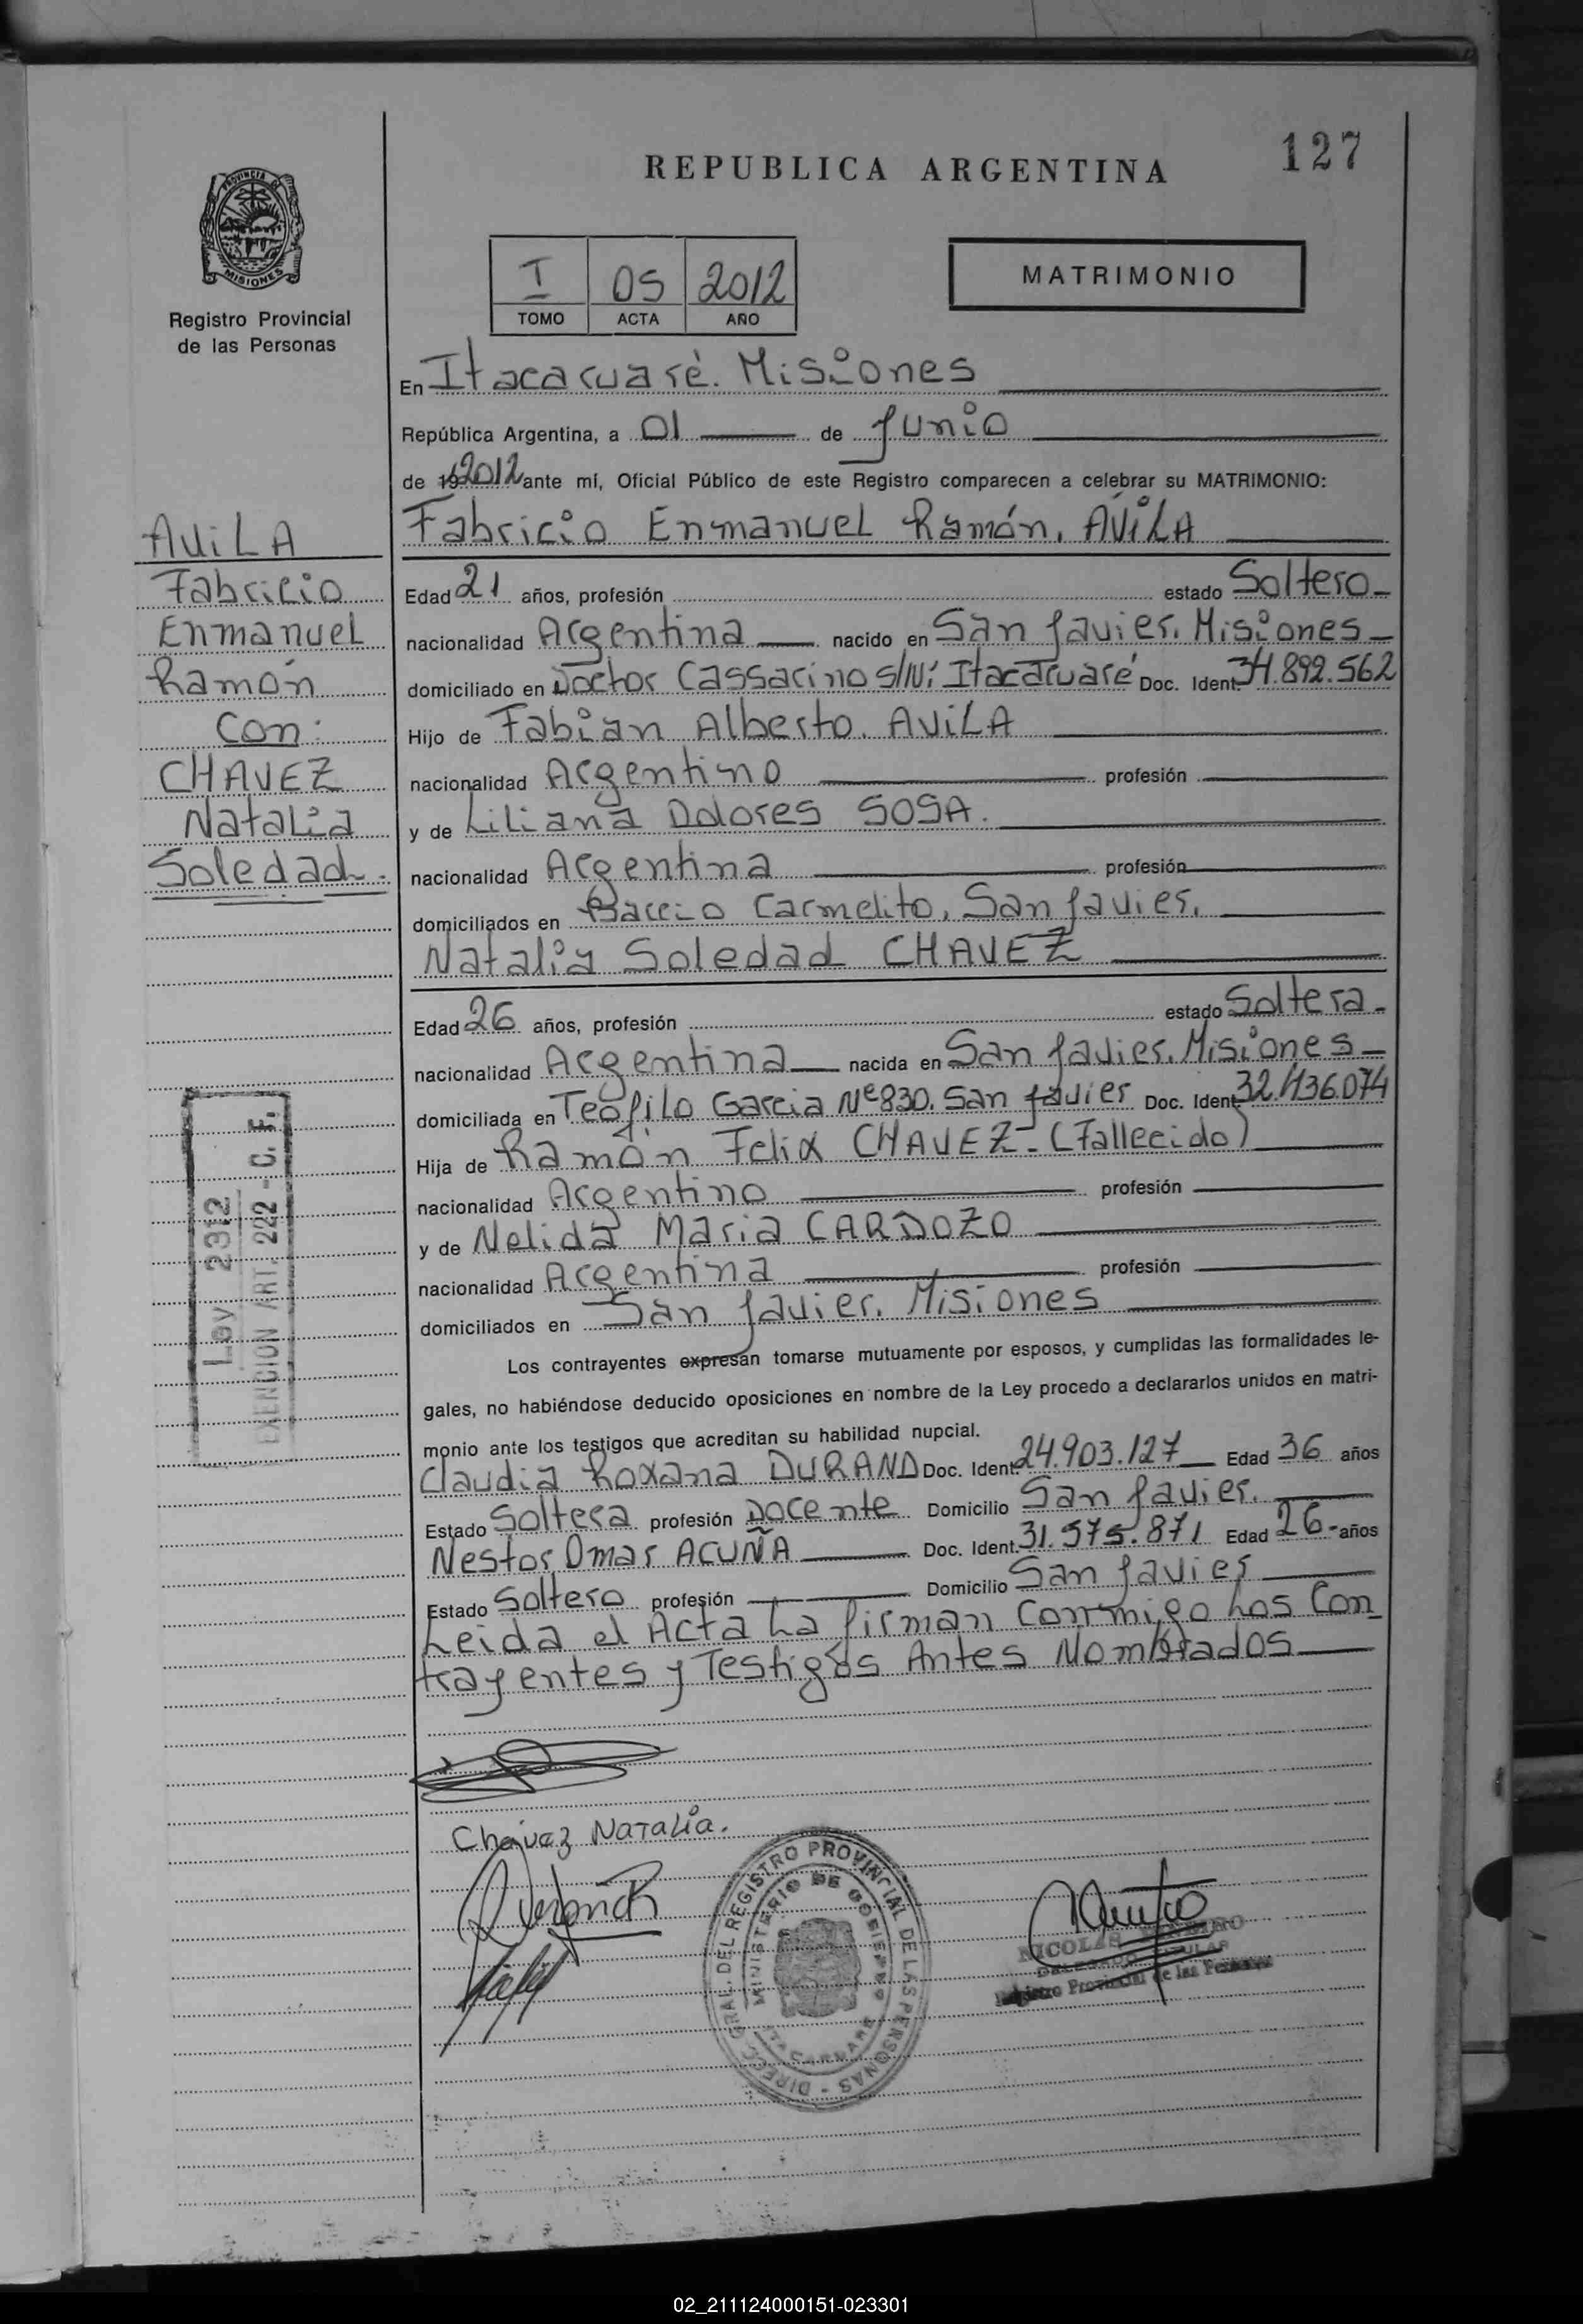 127
REPUBLICA ARGENTINA
PROVINCIA DE
MISIONES
Registro Provincial
de las Personas
I 05 2012
TOMO ACTA AÑO
MATRIMONIO
En Itacaruaré. Misiones
República Argentina, a 01 de Junio
de 19 2012 ante mí, Oficial Público de este Registro comparecen a celebrar su MATRIMONIO:
Fabricio Enmanuel Ramón. AViLA
AViLA
Fabricio
Enmanuel
Ramón
Con:
CHAVEZ
Natalia
Soledad.
Edad 21 años, profesión estado Soltero
nacionalidad Argentina nacido en San Javier. Misiones
domiciliado en Doctor Cassarino S/Nº Itacaruaré Doc. Ident. 34.892.562
Hijo de Fabian Alberto. AViLA
nacionalidad Argentino profesión
y de Liliana Dolores SOSA.
nacionalidad Argentina profesión
domiciliados en Barrio Carmelito. San Javier.
Natalia Soledad CHAVEZ
Edad 26 años, profesión estado Soltera
nacionalidad Argentina nacida en San Javier. Misiones
domiciliada en Teofilo Garcia Nº 830. San Javier Doc. Ident. 32.436.074
Hija de Ramón Felix CHAVEZ - (Fallecido)
nacionalidad Argentino profesión
y de Nelida Maria CARDOZO
nacionalidad Argentina profesión
domiciliados en San Javier. Misiones
Ley 2312
EXENCION ART. 222 - C. F.
Los contrayentes expresan tomarse mutuamente por esposos, y cumplidas las formalidades le-
gales, no habiéndose deducido oposiciones en nombre de la Ley procedo a declararlos unidos en matri-
monio ante los testigos que acreditan su habilidad nupcial.
Claudia Roxana DURAND Doc. Ident. 24.903.127 Edad 36 años
Estado Soltera profesión Docente Domicilio San Javier.
Nestor Omar ACUÑA Doc. Ident. 31.575.871 Edad 26 años
Estado Soltero profesión Domicilio San Javier
Leida el Acta La firman Conmigo Los Con
trayentes y Testigos Antes Nombrados
Chavez Natalia.
DIREC. GRAL. DEL REGISTRO PROVINCIAL DE LAS PERSONAS
MINISTERIO DE GOBIERNO
NICOLAS
DELEGADO TITULAR
Registro Provincial de las Personas
02_211124000151-023301